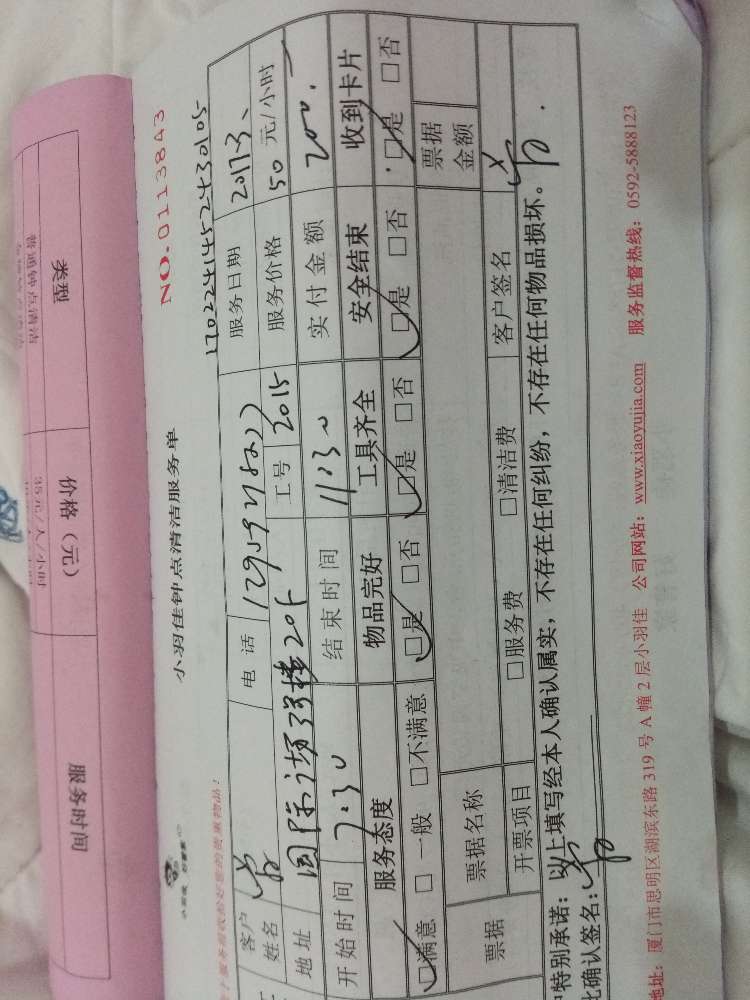 类型
价格（元）
服务时间
普通钟点清洁
35元/人/小时
NO.0113843
小羽佳钟点清洁服务单
1702241452430105
客户姓名
电话
服务日期 2017.3、
地址 国际
工号 2015
服务价格 50 元/小时
开始时间 7:30
结束时间 11:30
实付金额 200.
服务态度
物品完好
工具齐全
安全结束
收到卡片
☑满意 □一般 □不满意
☑是 □否
☑是 □否
☑是 □否
☑是 □否
票据
票据名称
票据金额
开票项目
□服务费
□清洁费
客户签名
特别承诺：以上填写经本人确认属实，不存在任何纠纷，不存在任何物品损坏。
此确认签名：
地址：厦门市思明区湖滨东路 319 号 A 幢 2 层小羽佳 公司网站：www.xiaoyujia.com 服务监督热线：0592-5888123